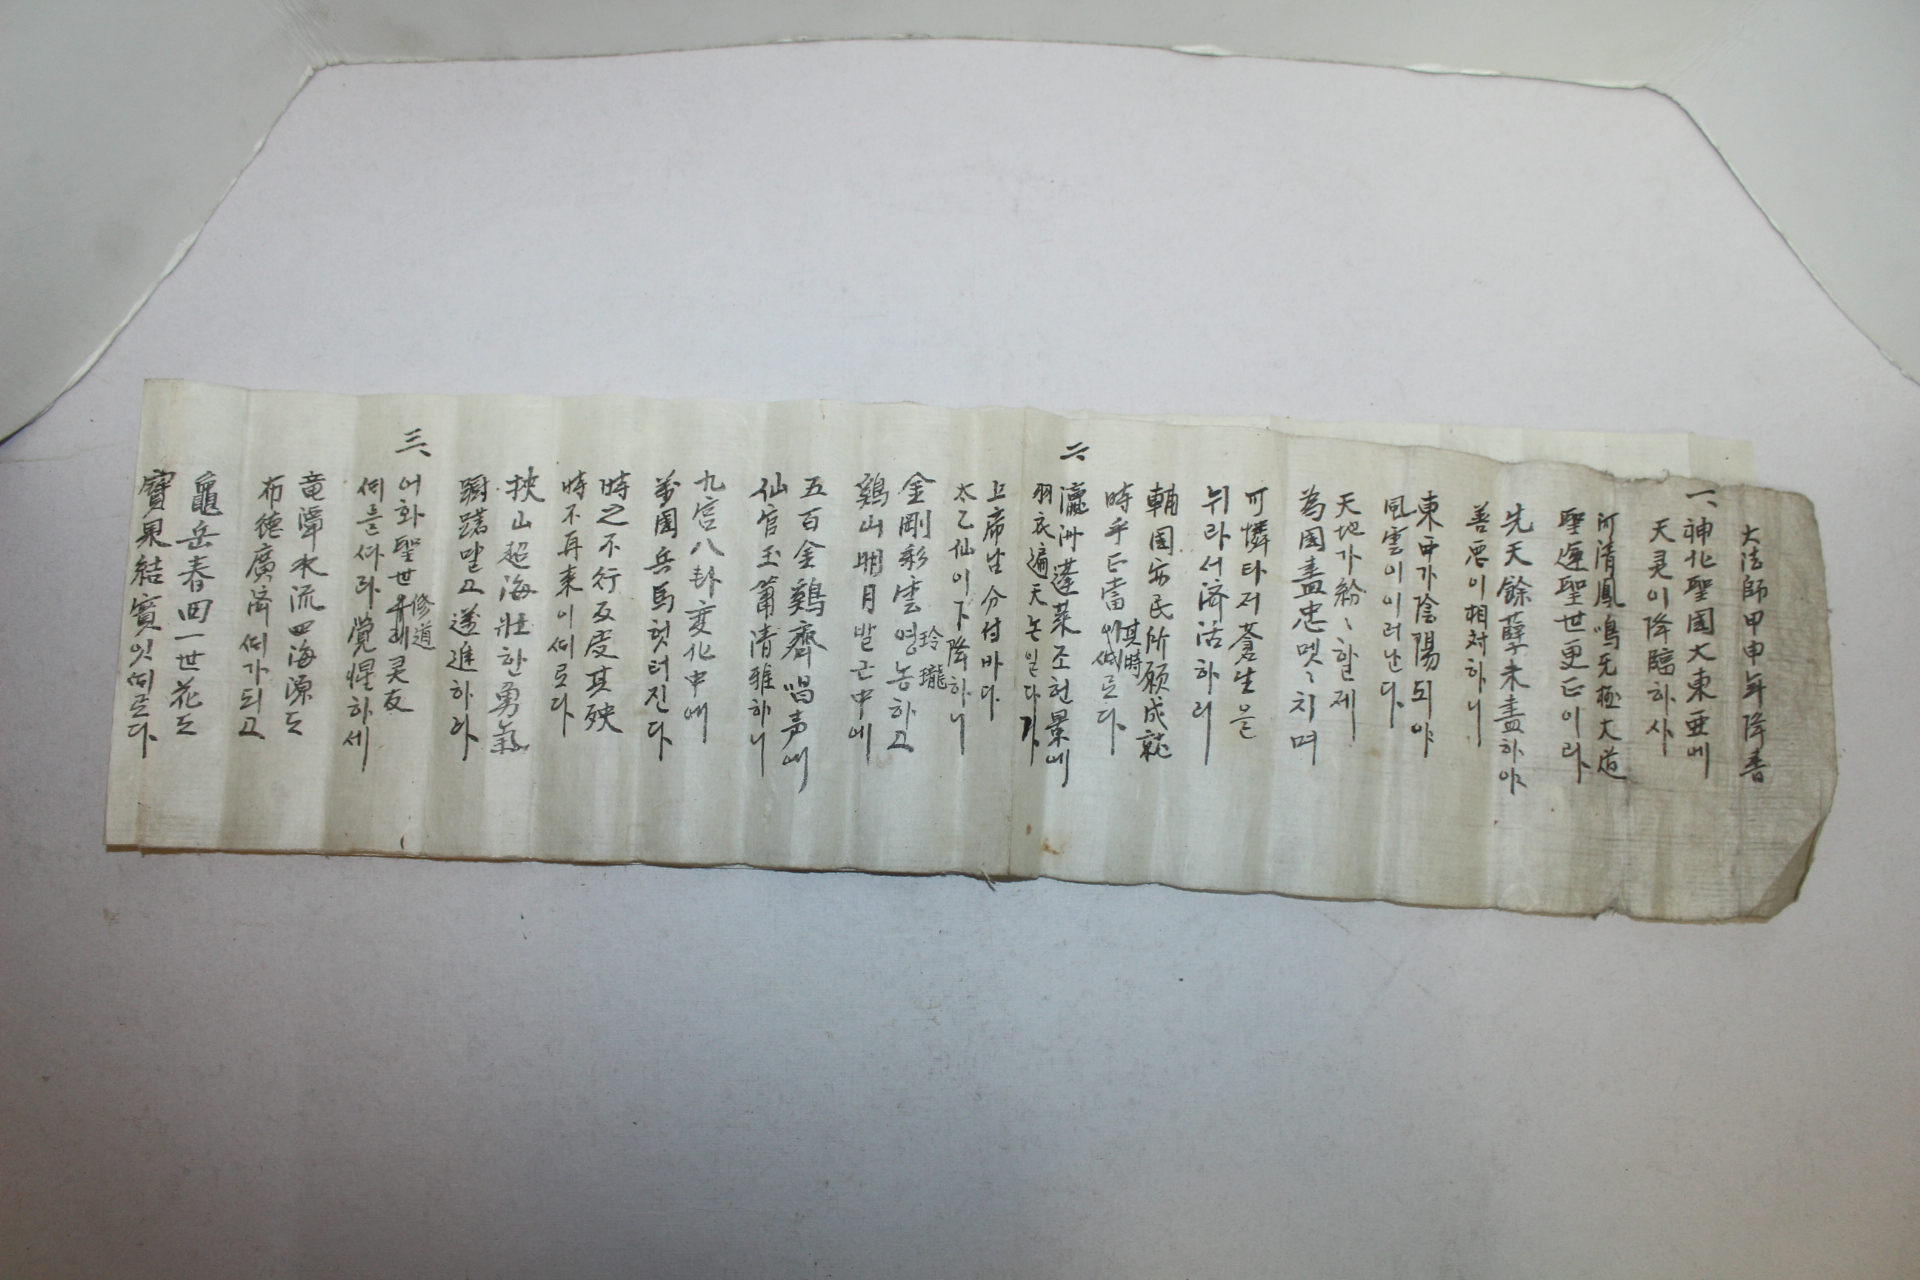 大法師甲申年降書
一、神化聖國大東亜에
天灵이降臨하사
河清鳳鳴无極大道
聖運聖世更正이라
先天餘孽未盡하야
善悪이相対하니
東西가陰陽되야
風雲이이러난다
天地가紛〻할제
為国盡忠멧〻치며
可憐타저蒼生은
뉘라서済活하리
輔国安民所願成就
時乎正當其時로다
二、
瀛洲蓬莱조흔景에
羽衣遍天논일다가
上帝님分付바다
太乙仙이下降하니
金剛彩雲영농하고
玲瓏
鷄山明月발근中에
五百金鷄齊唱声에
仙官玉簫清雅하니
九宮八卦変化中에
萬国兵馬헛터진다
時之不行反度其殃
時不再来이때로다
挾山超海壯한勇氣
躕躇말고遂進하라
三、
어화聖世우리灵友
修道
때를따라覚惺하세
竜潭水流四海源도
布徳廣済때가되고
龜岳春回一世花도
寶果結實잇때로다